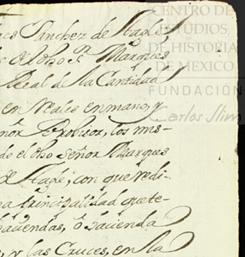 Sanchez de Tagle
Marques
Real de la Cantidad
en Reales en mano, y
nor Provisor, los mis-
de el dho Señor Marques
de Tagle, con que redi-
na principalidad que te-
haciendas, ô hacienda
y las Cruces, en la
CENTRO DE
ESTUDIOS
DE HISTORIA
DE MÉXICO
FUNDACIÓN
Carlos Slim